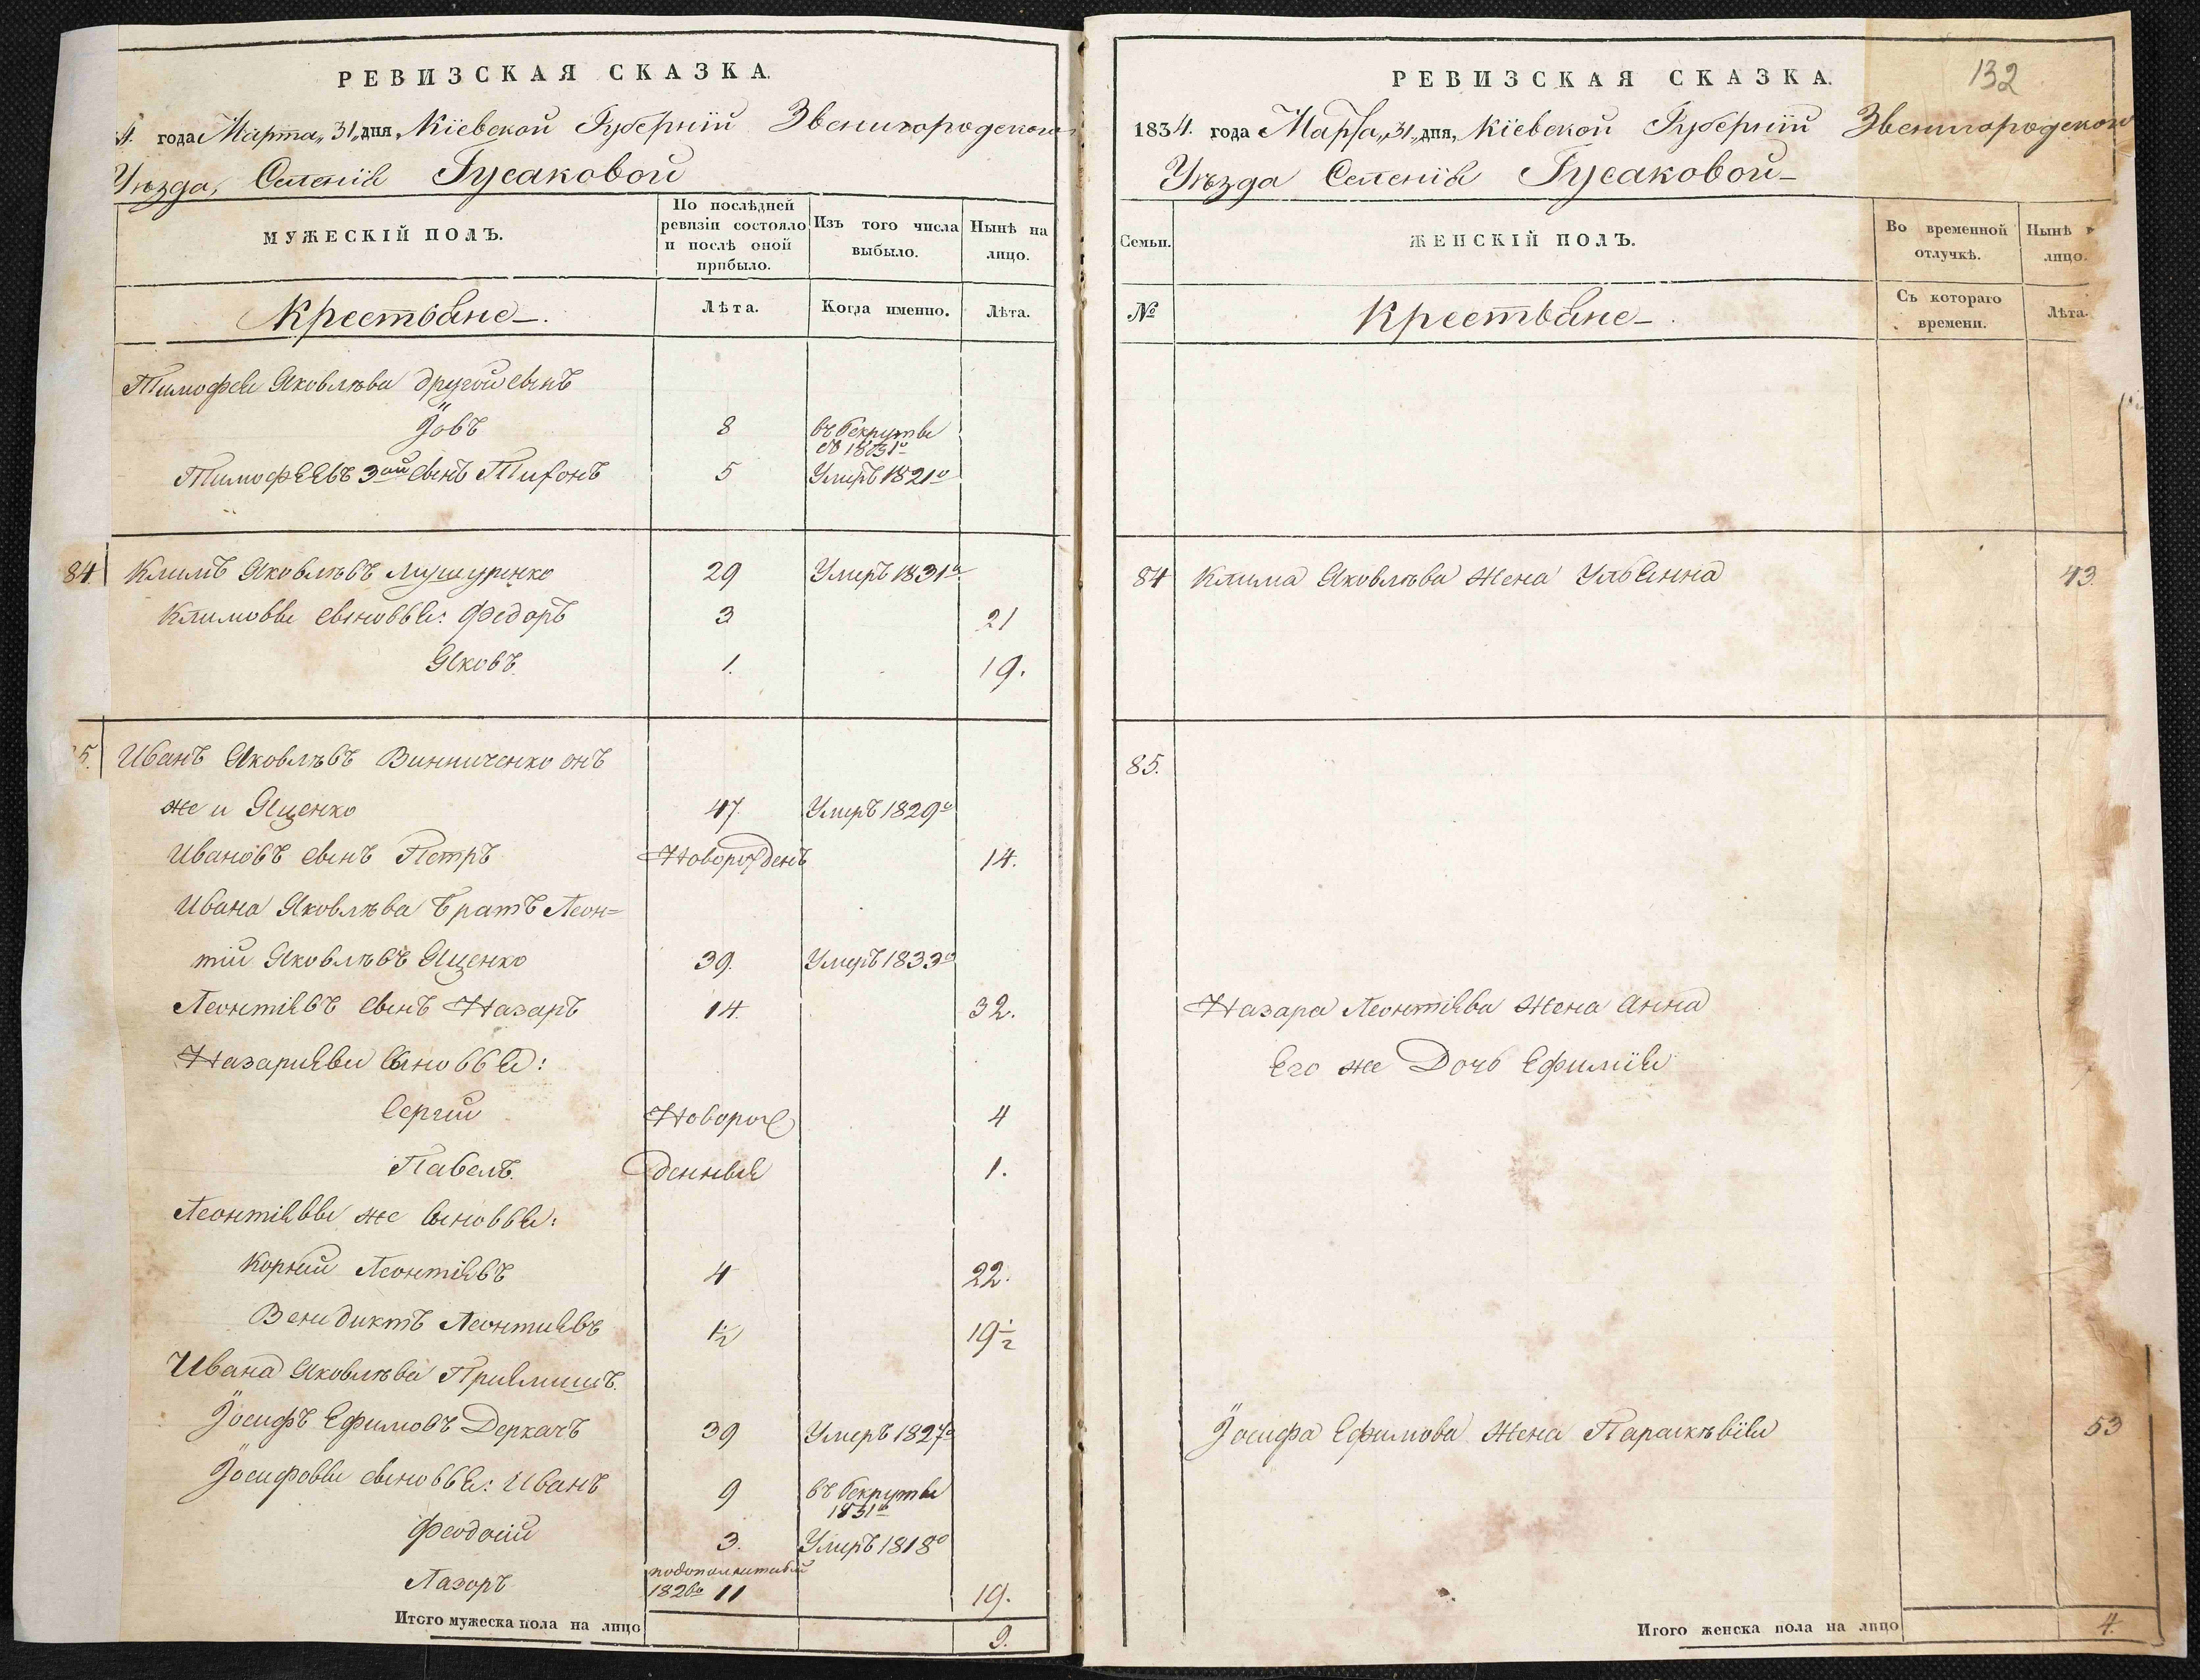 РЕВИЗСКАЯ СКАЗКА.
4. года Марта „31„ дня, Кіевской Губерніи Звенигородскаго
Уѣзда, Селенія Гусаковой
МУЖЕСКІЙ ПОЛЪ.
По послѣдней ревизіи состояло и послѣ оной прибыло.
Изъ того числа выбыло.
Нынѣ на лицо.
Крестьяне
Лѣта.
Когда именно.
Лѣта.
Тимофея Яковлѣва другой сынъ
Іовъ 8 въ рекруты въ 1831го
Тимофѣевъ 3ий сынъ Тихонъ 5 Умеръ 1821го
84 Климъ Яковлѣвъ Лушуренко 29 Умеръ 1831го
Климовы сыновья: Федоръ 3 21
Яковъ 1. 19.
5. Иванъ Яковлѣвъ Винниченко онъ
же и Яценко 47 Умеръ 1829го
Ивановъ сынъ Петръ Новорожденъ 14.
Ивана Яковлѣва братъ Леон=
тій Яковлѣвъ Яценко 39. Умеръ 1833го
Леонтіевъ сынъ Назаръ 14 32.
Назаріевы сыновья:
Сергій Новорож 4
Павелъ денные 1.
Леонтіевы же сыновья:
Корній Леонтіевъ 4 22.
Венидиктъ Леонтиевъ 1/2 19 1/2
Ивана Яковлѣва Приемышъ
Іосифъ Ефимовъ Деркачъ 39 Умеръ 1827го
Іосифовы сыновья: Иванъ 9 въ рекруты 1831го
Феодосій 3. Умеръ 1818го
Лазоръ 1826го 11 19.
Итого мужеска пола на лицо 9.
132
РЕВИЗСКАЯ СКАЗКА.
1834. года Марта „31„ дня, Кіевской Губерніи Звенигородского
Уѣзда Селенія Гусаковой
Семьи.
ЖЕНСКІЙ ПОЛЪ.
Во временной отлучкѣ.
Нынѣ
лицо.
№
Крестьяне
Съ котораго времени.
Лѣта.
84 Клима Яковлѣва жена Ульянна 43.
85.
Назара Леонтіева жена Анна
Его же Дочь Ефимія
Іосифа Ефимова жена Параскѣвія 53
Итого женска пола на лицо 4.